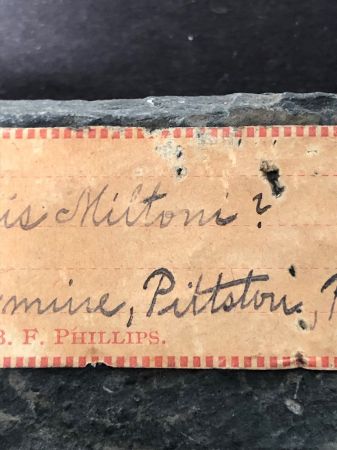 is Miltoni?
mine, Pittston, P
B. F. PHILLIPS.